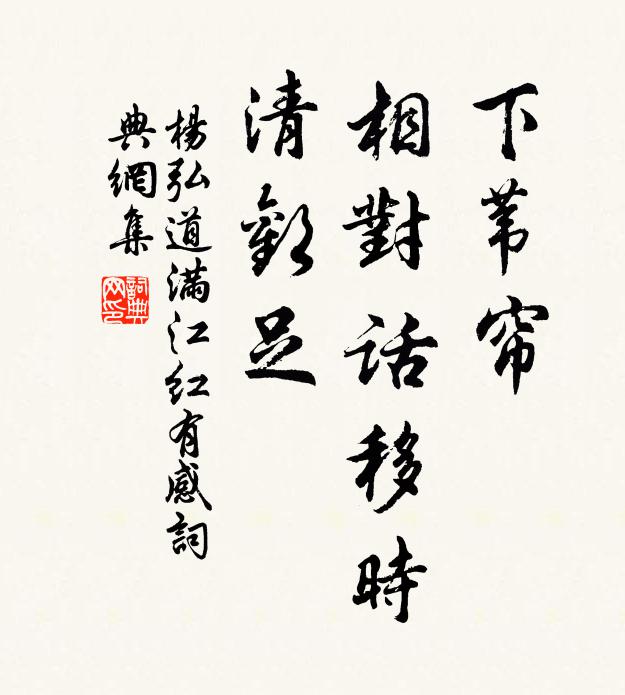 下苇帘
相對話移時
清歡足
楊弘道滿江红有感詞
典網集
詞典
网印